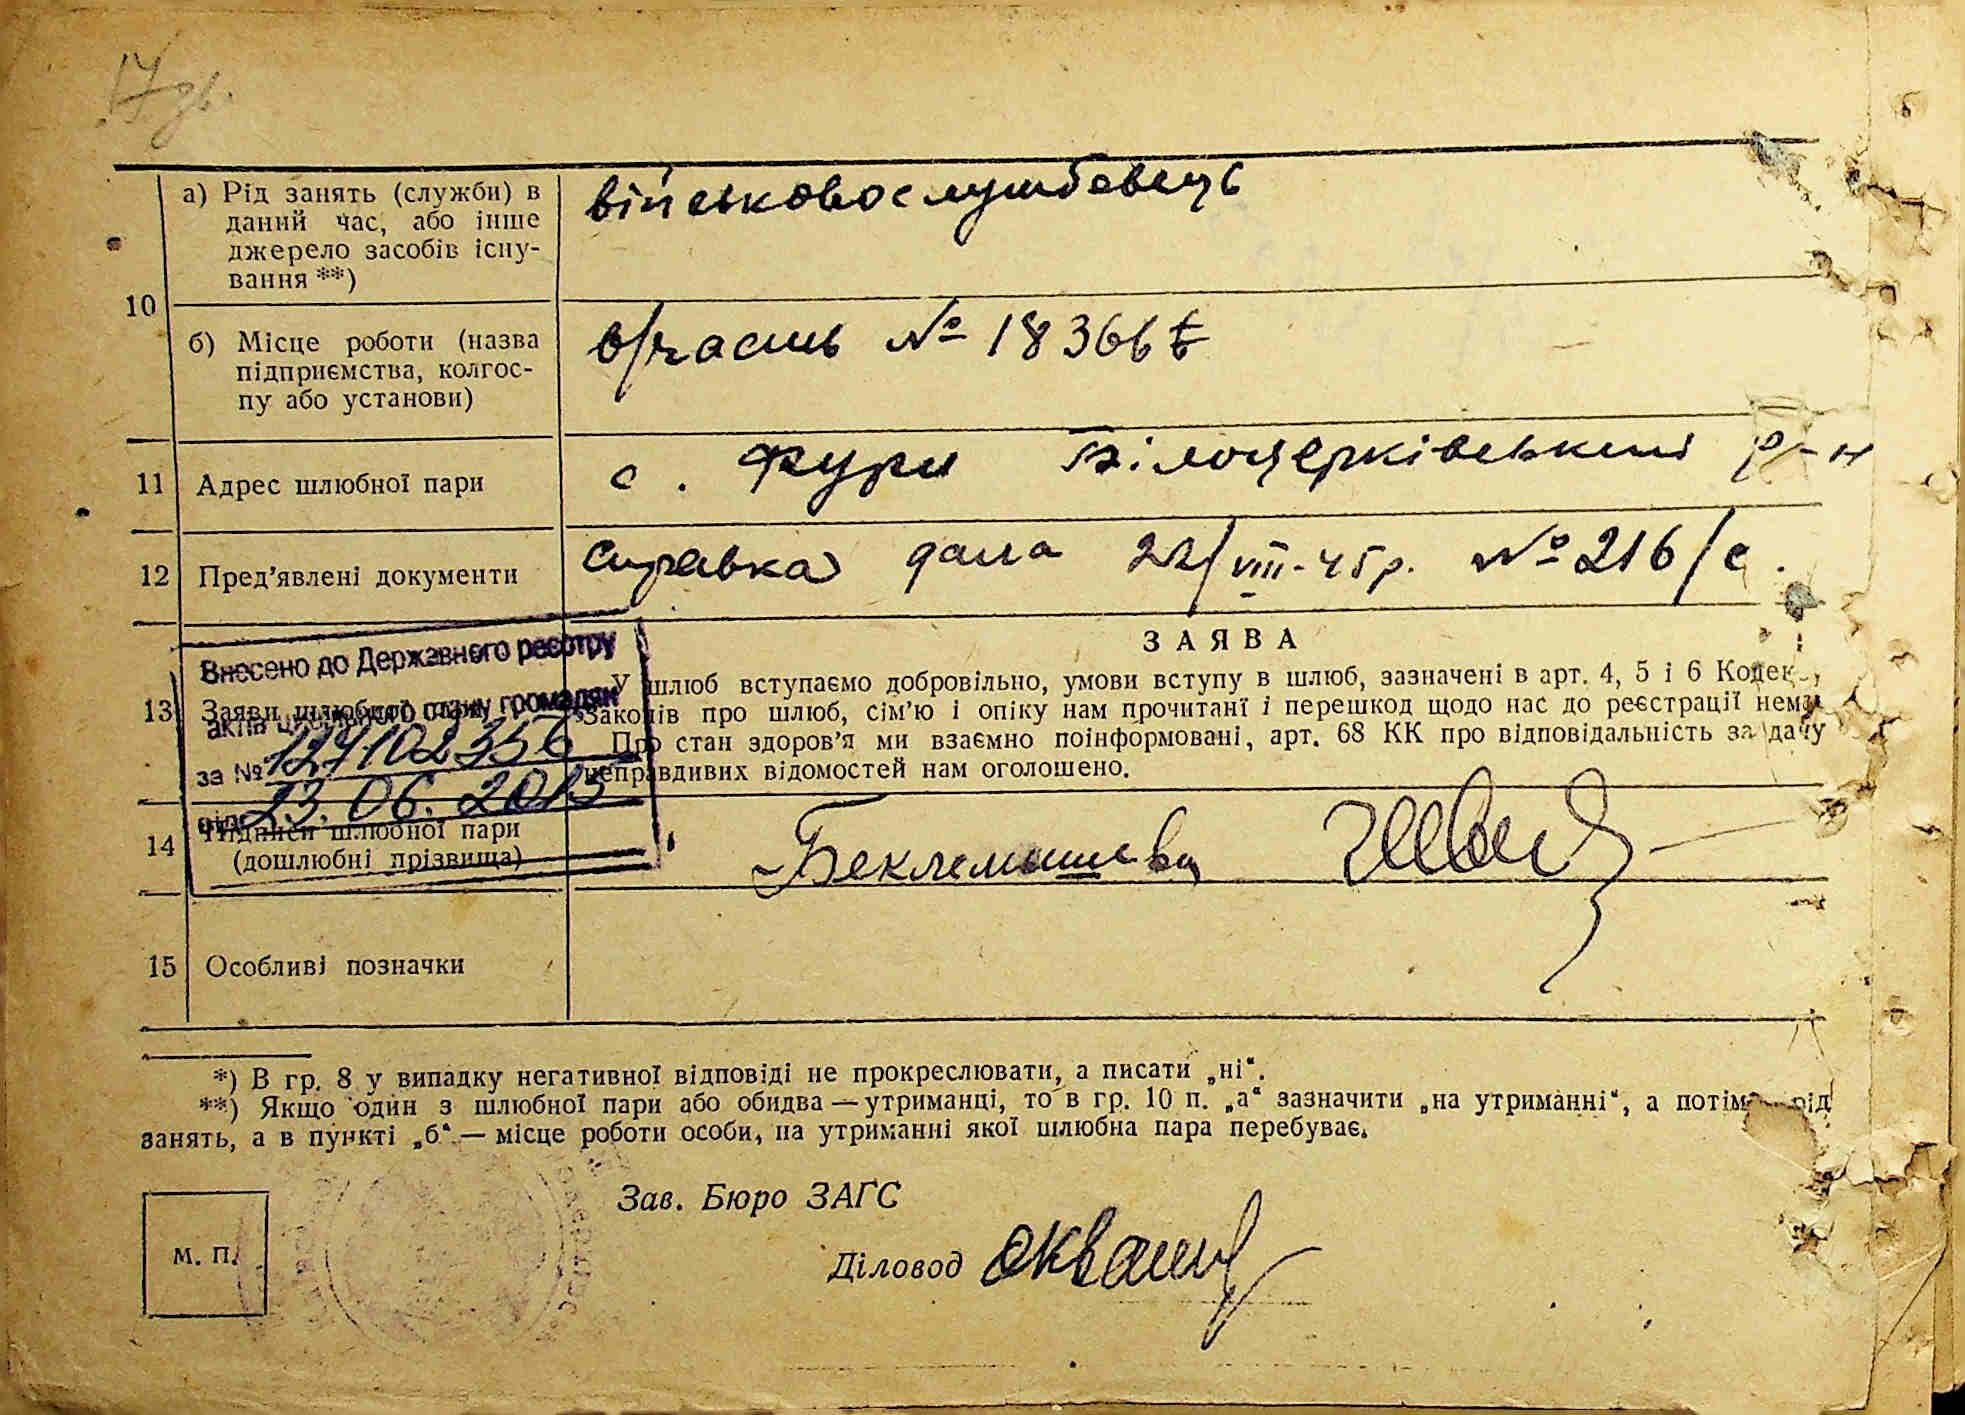 17 зв.
10
а) Рід занять (служби) в
даний час, або інше
джерело засобів існу-
вання **)
військовослужбовець
б) Місце роботи (назва
підприємства, колгос-
пу або установи)
в/часть № 18366
11 Адрес шлюбної пари
с. Фурси Білоцерківський р-н
12 Пред'явлені документи
справка дана 22/VIII-45р. № 216/с.
Внесено до Державного реєстру
актів цивільного стану громадян
за № 127102356
від 23.06.2015
13 Заяви шлюбної
ЗАЯВА
У шлюб вступаємо добровільно, умови вступу в шлюб, зазначені в арт. 4, 5 і 6 Кодек
Законів про шлюб, сім'ю і опіку нам прочитані і перешкод щодо нас до реєстрації нема.
Про стан здоров'я ми взаємно поінформовані, арт. 68 КК про відповідальність за дачу
неправдивих відомостей нам оголошено.
14 Підписи шлюбної пари
(дошлюбні прізвища)
Беклемишева
15 Особливі позначки
*) В гр. 8 у випадку негативної відповіді не прокреслювати, а писати „ні“.
**) Якщо один з шлюбної пари або обидва — утриманці, то в гр. 10 п. „а“ зазначити „на утриманні“, а потім рід
занять, а в пункті „б“ — місце роботи особи, на утриманні якої шлюбна пара перебуває.
Зав. Бюро ЗАГС
М. П.
Діловод